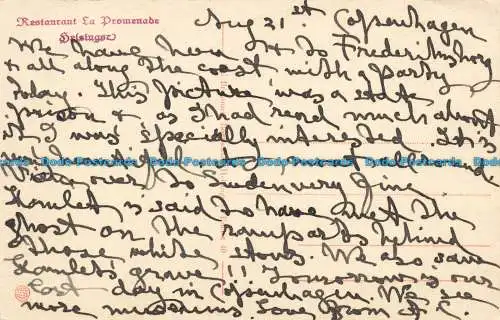 Restaurant La Promenade
Helsingør
Aug 21st Copenhagen
We have been to Frederiksborg
& all along the coast with a party
today. This picture was a state
prison & as I had read much about
it I was specially interested. It is
Dodo Postcards Dodo Postcards Dodo Postcards Dodo Postcards
over to Sweden very fine
Hamlet is said to have met the
ghost on the ramparts behind
those white stones. We also saw
Hamlets grave!! Tomorrow is our
last day in Copenhagen. We see
more museums Love from